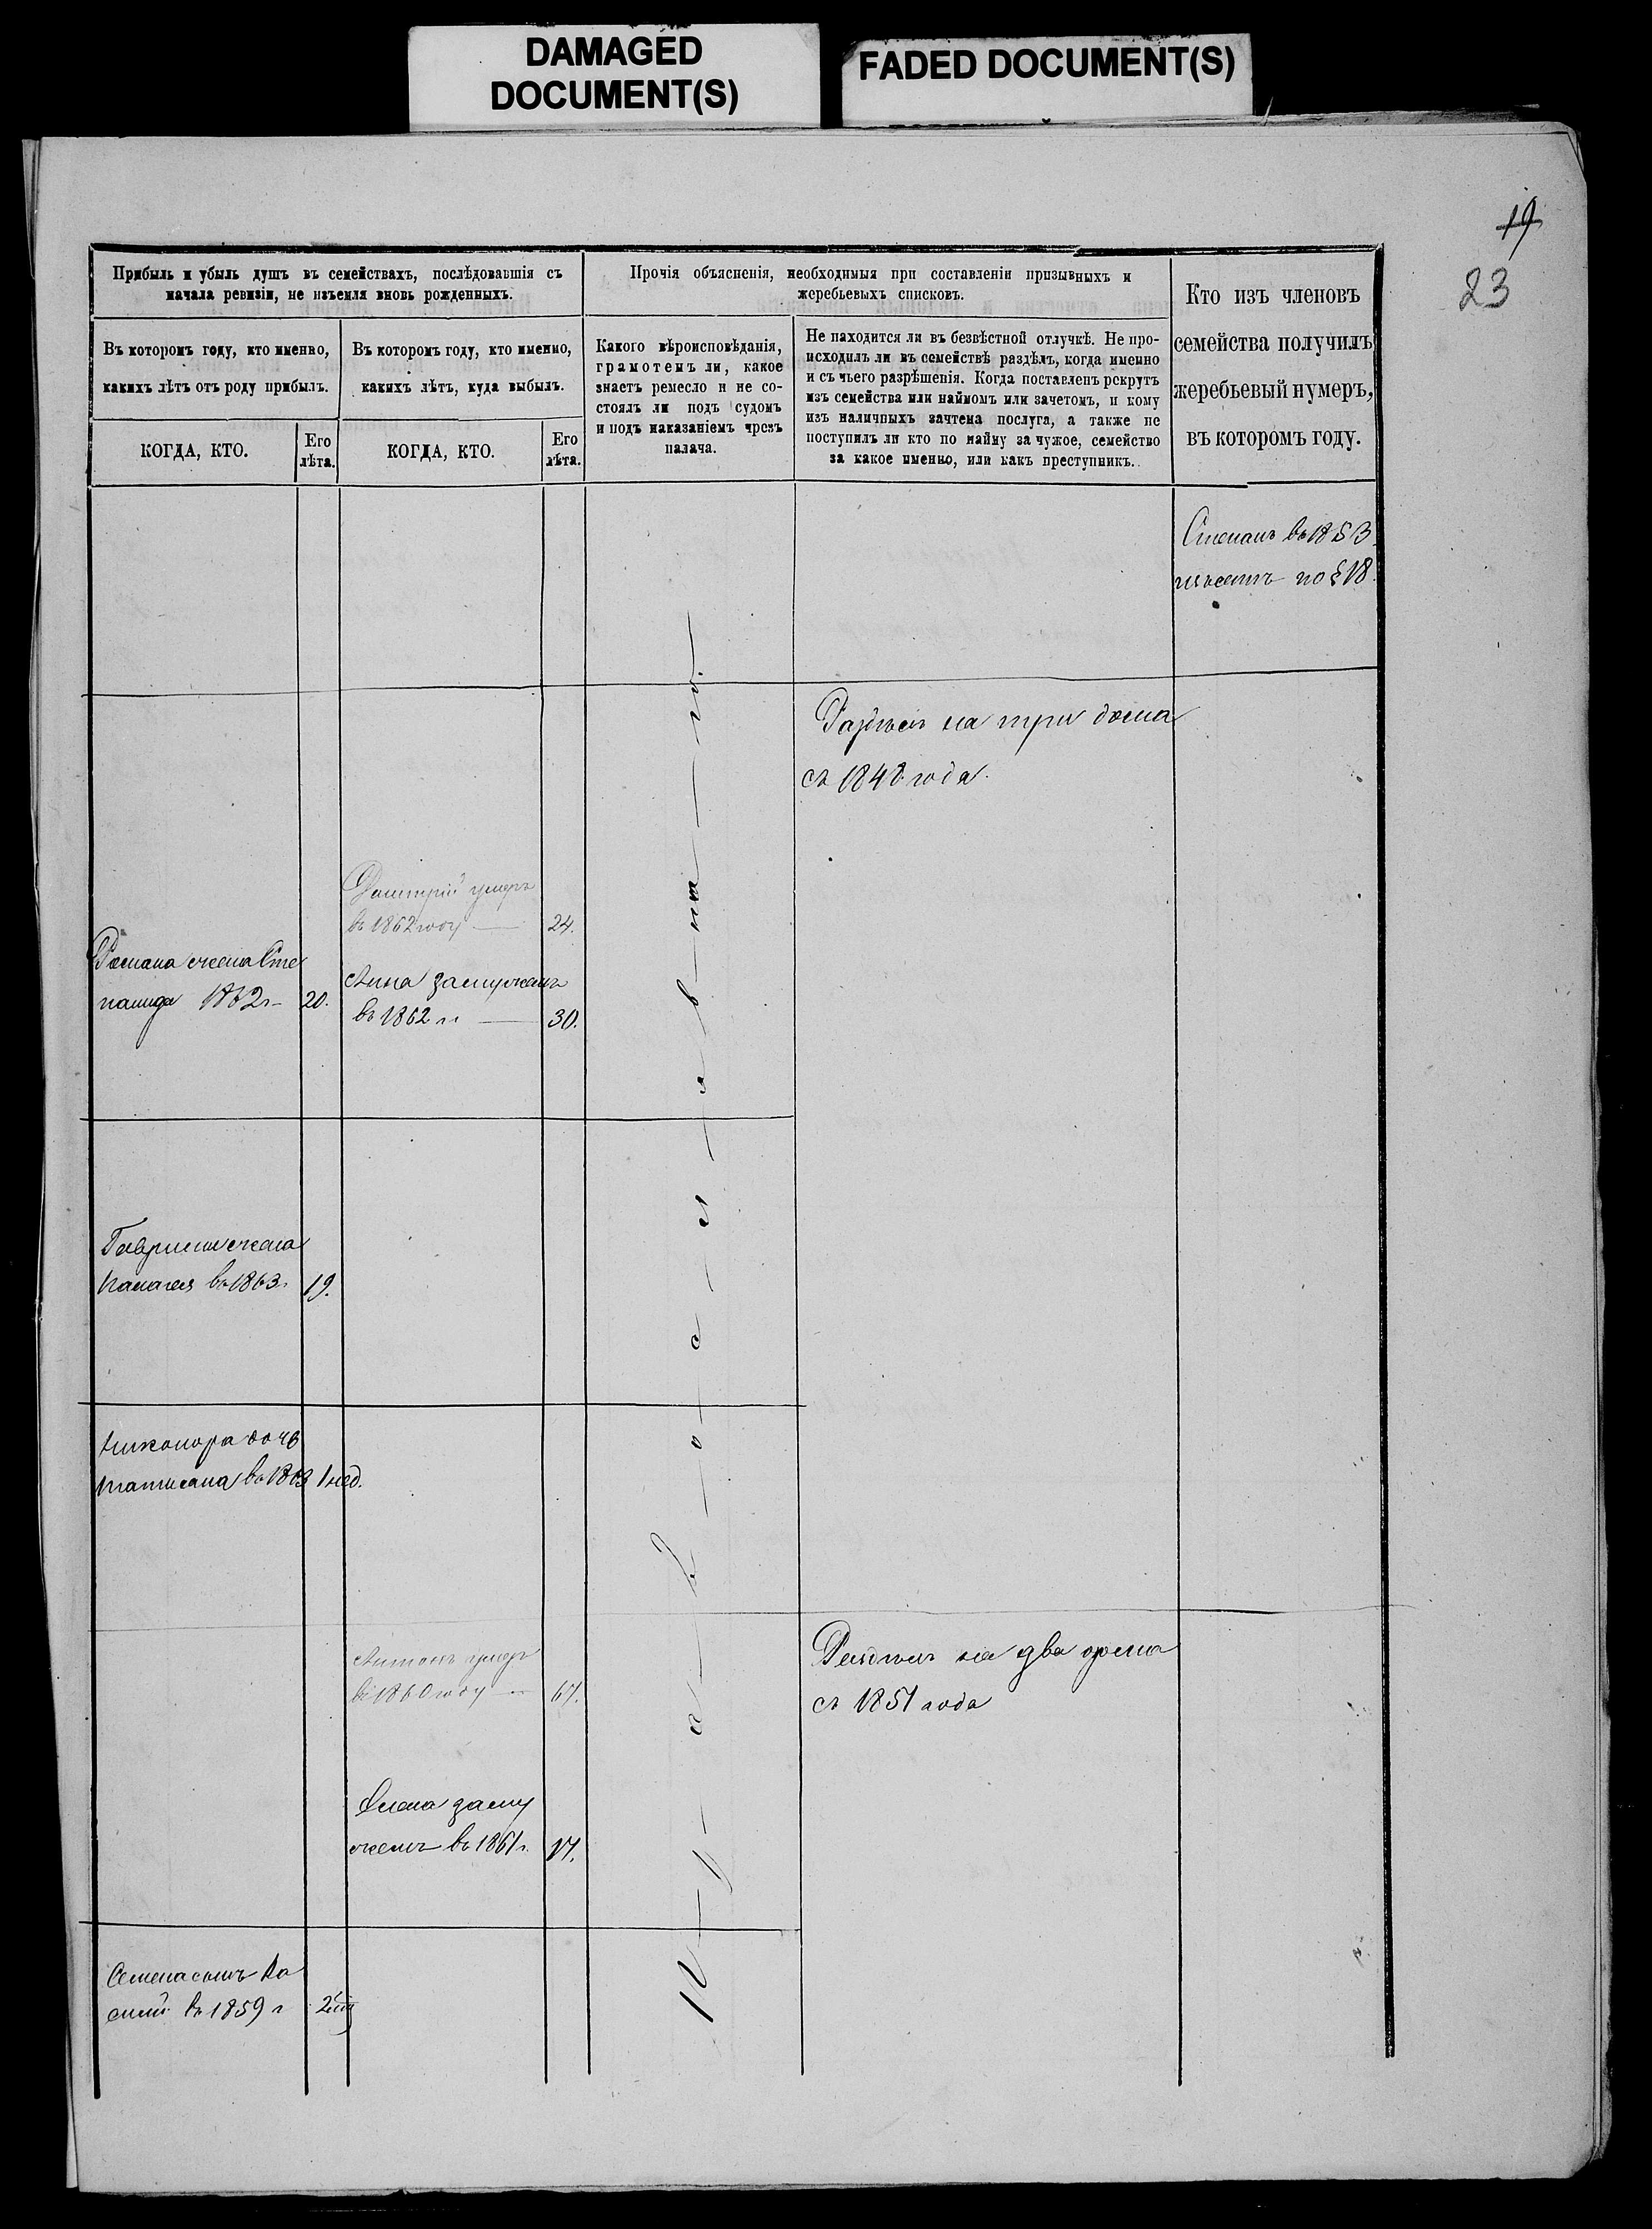 DAMAGED
DOCUMENT(S)
FADED DOCUMENT(S)
19
23
Прибыль и убыль душъ въ семействахъ, послѣдовавшія съ
начала ревизіи, не изъемля вновь рожденныхъ.
Прочія объясненія, необходимыя при составленіи призывныхъ и
жеребьевыхъ списковъ.
Кто изъ членовъ
семейства получилъ
жеребьевый нумеръ,
въ которомъ году.
Въ которомъ году, кто именно,
какихъ лѣтъ отъ роду прибылъ.
Въ которомъ году, кто именно,
какихъ лѣтъ, куда выбылъ.
Какого вѣроисповѣданія,
грамотенъ ли, какое
знаетъ ремесло и не со-
стоялъ ли подъ судомъ
и подъ наказаніемъ чрезъ
палача.
Не находится ли въ безвѣстной отлучкѣ. Не про-
исходилъ ли въ семействѣ раздѣлъ, когда именно
и съ чьего разрѣшенія. Когда поставленъ рекрутъ
изъ семейства или наймомъ или зачетомъ, и кому
изъ наличныхъ зачтена послуга, а также не
поступилъ ли кто по найму за чужое, семейство
за какое именно, или какъ преступникъ.
КОГДА, КТО.
Его
лѣта.
КОГДА, КТО.
Его
лѣта.
Степанъ въ 1853
по § 18.
Раздѣлъ на три дома
съ 1848 года.
Дмитрій умеръ
въ 1862 году 24.
Романа жена Сте
панида 1862 г 20.
Анна замужемъ
въ 1862 г. 30.
Православнаго
Гаврилы жена
Палагея въ 1863 г 19.
Никонора дочь
Татиана въ 1863 1 нед.
Антонъ умеръ
въ 1860 году 67.
Раздѣлъ на два дома
съ 1851 года
Олена заму
жемъ въ 1861 г. 17.
Семена сынъ Ва
силій въ 1859 г